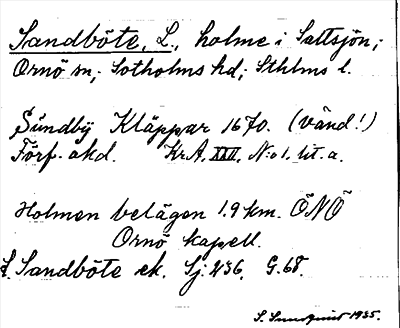 Sandböte, L., holme i Saltsjön;
Ornö sn; Sotholms hd; Sthlms l.
Sundby Kläppar 1670. (vänd!)
Förf. okd. KrA. XXII. N:o 1. lit. a.
Holmen belägen 1.9 km. ÖNÖ
Ornö kapell.
L. Sandböte ek. Sj. 236. G. 68.
S. Sundquist 1935.